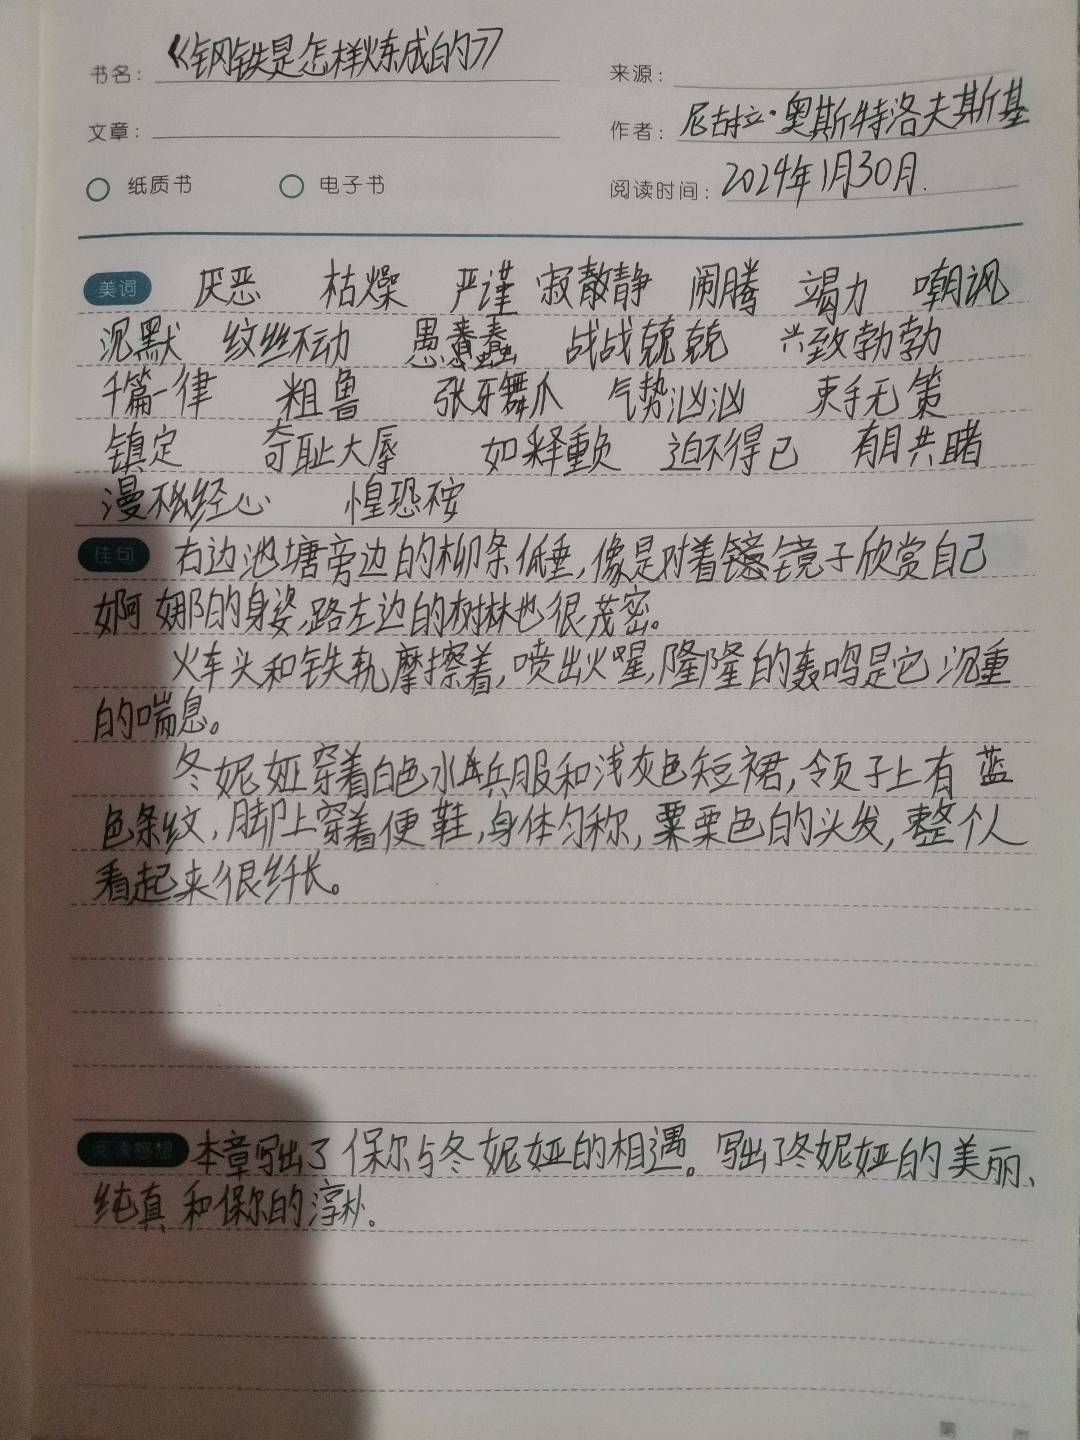 书名：《钢铁是怎样炼成的》
来源：
文章：
作者：尼古拉·奥斯特洛夫斯基
纸质书 电子书
阅读时间：2024年1月30月.
美词 厌恶 枯燥 严谨 寂静 闹腾 竭力 嘲讽
沉默 纹丝不动 愚蠢 战战兢兢 兴致勃勃
千篇一律 粗鲁 张牙舞爪 气势汹汹 束手无策
镇定 奇耻大辱 如释重负 迫不得已 有目共睹
漫不经心 惶恐不安
佳句 右边池塘旁边的柳条低垂，像是对着镜子欣赏自己
婀娜的身姿，路左边的树林也很茂密。
火车头和铁轨摩擦着，喷出火星，隆隆的轰鸣是它沉重
的喘息。
冬妮娅穿着白色水兵服和浅灰色短裙，领子上有蓝
色条纹，脚上穿着便鞋，身体匀称，栗色的头发，整个人
看起来很纤长。
阅读感想 本章写出了保尔与冬妮娅的相遇。写出了冬妮娅的美丽、
纯真和保尔的淳朴。
第 页